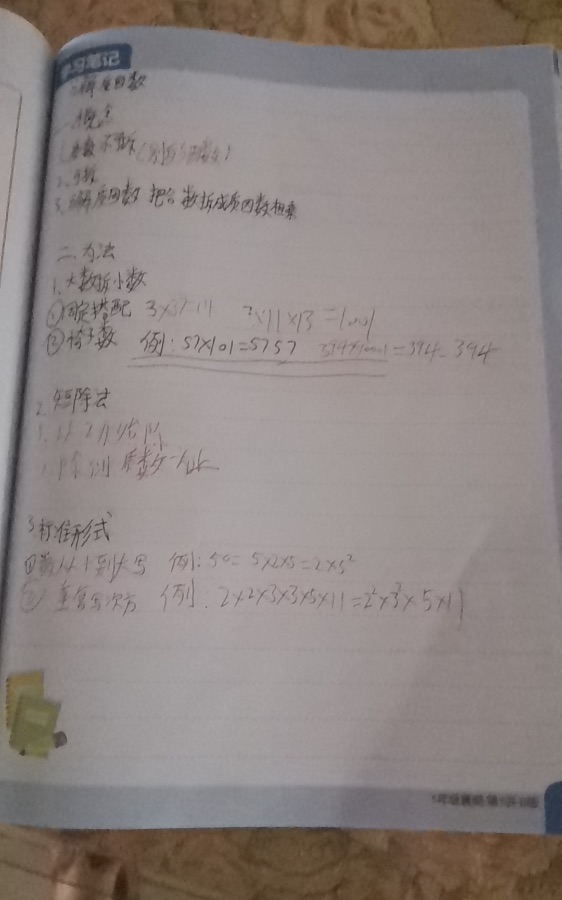 学习笔记
分解质因数
一、概念
1.质数 不可拆
2.可拆
3.分解质因数 把合数拆成质因数相乘
二、方法
1.大数拆小数
①固定搭配 3×37=111 7×11×13=1001
②椅子数 例:57×101=5757 394×1001=394 394
2.短除法
1.从2开始除
2.除到 质数 为止
3.标准形式
①数从小到大写 例:50=5×2×5=2×5²
②重复写次方 例:2×2×3×3×5×11=2²×3²×5×11